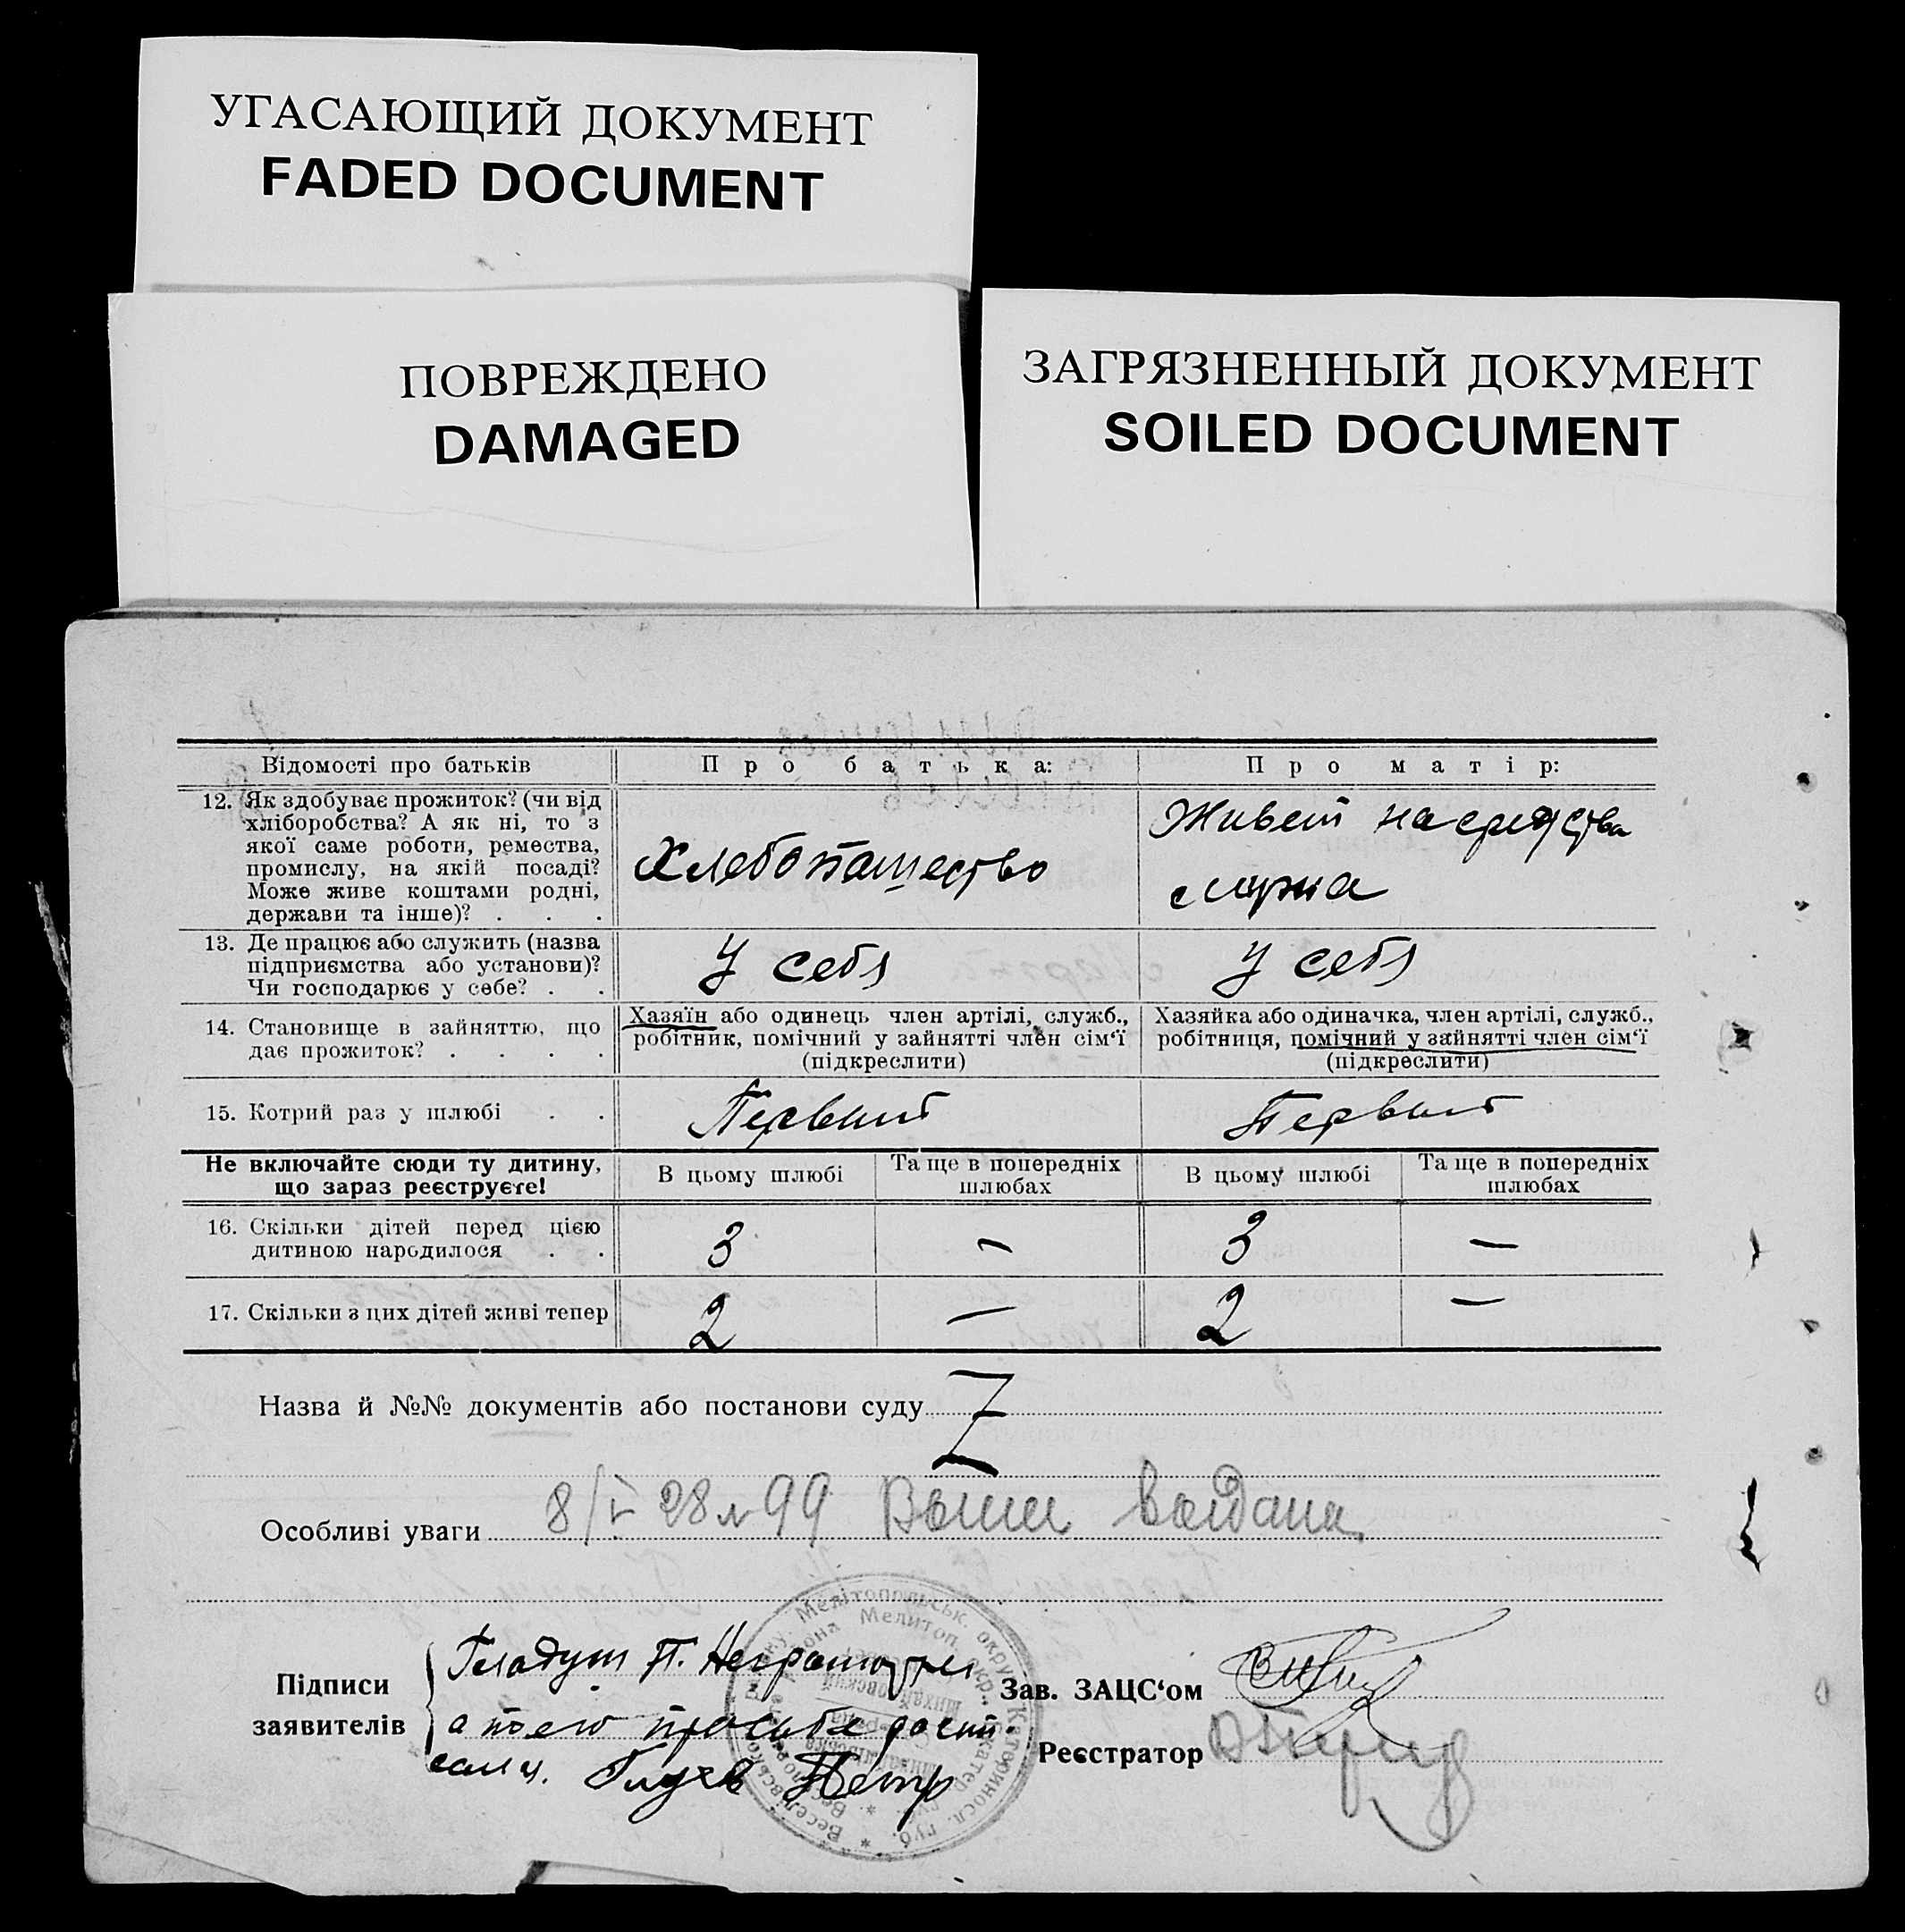 УГАСАЮЩИЙ ДОКУМЕНТ
FADED DOCUMENT
ПОВРЕЖДЕНО
DAMAGED
ЗАГРЯЗНЕННЫЙ ДОКУМЕНТ
SOILED DOCUMENT
Відомості про батьків
Про батька:
Про матір:
12. Як здобуває прожиток? (чи від
хліборобства? А як ні, то з
якої саме роботи, ремества,
промислу, на якій посаді?
Може живе коштами родні,
держави та інше)? . . .
Хлебопашество
Живет на средства
мужа
13. Де працює або служить (назва
підприємства або установи)?
Чи господарює у себе? . .
У себя
У себя
14. Становище в зайняттю, що
дає прожиток? . . . .
Хазяїн або одинець член артілі, служб.,
робітник, помічний у зайнятті член сім‘ї
(підкреслити)
Хазяйка або одиначка, член артілі, служб.,
робітниця, помічний у зайнятті член сім‘ї
(підкреслити)
15. Котрий раз у шлюбі . .
Первый
Первый
Не включайте сюди ту дитину,
що зараз реєструєте!
В цьому шлюбі
Та ще в попередніх
шлюбах
В цьому шлюбі
Та ще в попередніх
шлюбах
16. Скільки дітей перед цією
дитиною народилося . .
3 — 3 —
17. Скільки з цих дітей живі тепер
2 — 2 —
Назва й №№ документів або постанови суду
Особливі уваги 8/V 28 № 99 Выпис выдана
Підписи
заявителів
Гладуш П. Неграмотный
а по его просьбе распи-
сался Петр
Зав. ЗАЦС‘ом
Реєстратор
Мелітопольськ. округи Катериносл. губ.